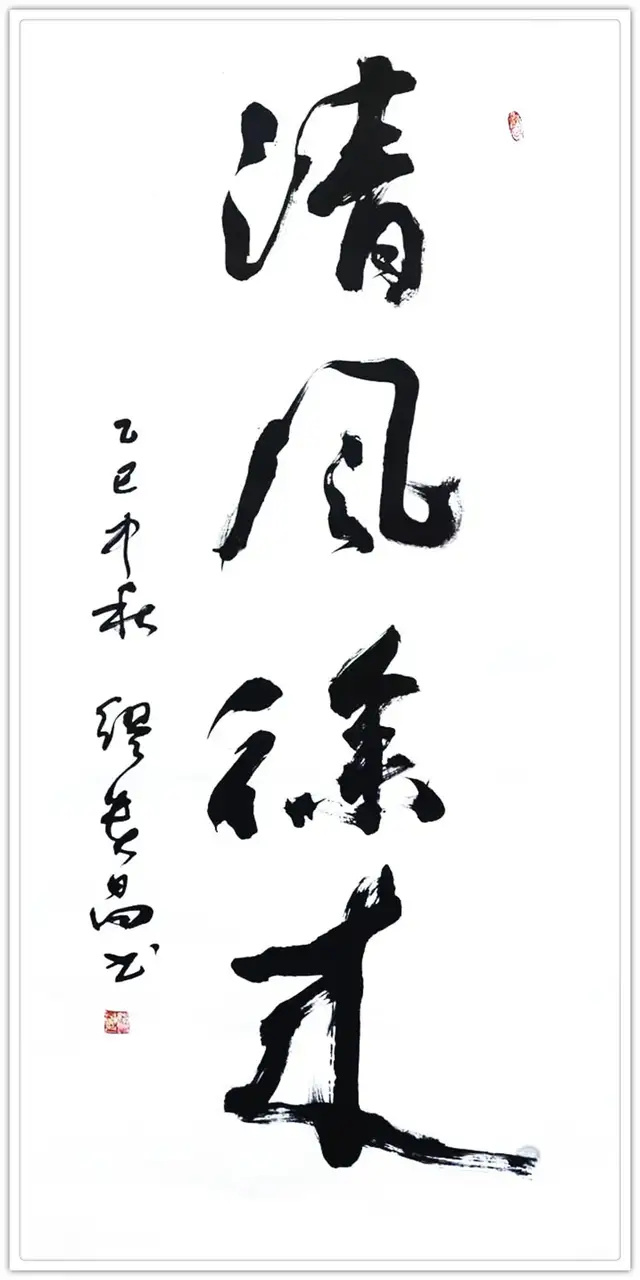 清风徐来
乙巳中秋 缪长昌书